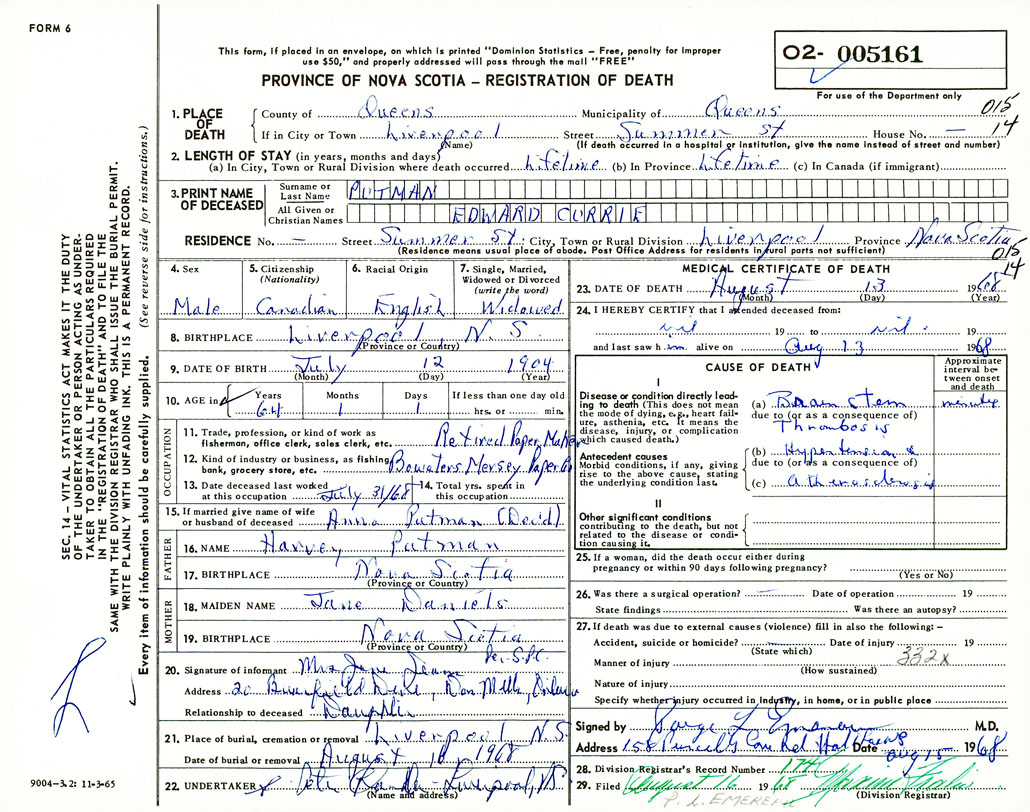 FORM 6
This form, if placed in an envelope, on which is printed "Dominion Statistics – Free, penalty for improper
use $50," and properly addressed will pass through the mail "FREE"
PROVINCE OF NOVA SCOTIA – REGISTRATION OF DEATH
02- 005161
For use of the Department only
015
14
1. PLACE OF DEATH County of Queens Municipality of Queens
If in City or Town Liverpool Street Summer St House No. —
(Name) (If death occurred in a hospital or institution, give the name instead of street and number)
2. LENGTH OF STAY (in years, months and days)
(a) In City, Town or Rural Division where death occurred Lifetime (b) In Province Lifetime (c) In Canada (if immigrant)
3. PRINT NAME OF DECEASED Surname or Last Name PUTMAN
All Given or Christian Names EDWARD CURRIE
RESIDENCE No. — Street Summer St. City, Town or Rural Division Liverpool Province Nova Scotia
(Residence means usual place of abode. Post Office Address for residents in rural parts not sufficient)
015
14
4. Sex Male
5. Citizenship (Nationality) Canadian
6. Racial Origin English
7. Single, Married, Widowed or Divorced (write the word) Widowed
8. BIRTHPLACE Liverpool N.S.
(Province or Country)
9. DATE OF BIRTH July 12 1904
(Month) (Day) (Year)
10. AGE in Years 64 Months 1 Days 1 If less than one day old
hrs. or min.
OCCUPATION
11. Trade, profession, or kind of work as
fisherman, office clerk, sales clerk, etc. Retired Paper Maker
12. Kind of industry or business, as fishing,
bank, grocery store, etc. Bowaters Mersey Paper Co
13. Date deceased last worked at this occupation July 31/68
14. Total yrs. spent in this occupation
15. If married give name of wife
or husband of deceased Anna Putman (Dec'd)
FATHER
16. NAME Harvey Putman
17. BIRTHPLACE Nova Scotia
(Province or Country)
MOTHER
18. MAIDEN NAME Jane Daniels
19. BIRTHPLACE Nova Scotia
(Province or Country)
20. Signature of informant Mrs
Address 20 Don Mills, Ontario
Relationship to deceased Daughter
21. Place of burial, cremation or removal Liverpool N.S.
Date of burial or removal August 16 1968
22. UNDERTAKER Liverpool, N.S.
(Name and address)
9004–3.2: 11-3-65
MEDICAL CERTIFICATE OF DEATH
23. DATE OF DEATH August 13 1968
(Month) (Day) (Year)
24. I HEREBY CERTIFY that I attended deceased from:
nil 19 to nil 19
and last saw him alive on Aug 13 1968
CAUSE OF DEATH
Approximate interval between onset and death
I
Disease or condition directly leading to death (This does not mean the mode of dying, e.g., heart failure, asthenia, etc. It means the disease, injury, or complication which caused death.)
(a) Brain Stem minutes
due to (or as a consequence of)
Thrombosis
Antecedent causes
Morbid conditions, if any, giving rise to the above cause, stating the underlying condition last.
(b) Hypertension &
due to (or as a consequence of)
(c) atherosclerosis
II
Other significant conditions
contributing to the death, but not related to the disease or condition causing it.
25. If a woman, did the death occur either during
pregnancy or within 90 days following pregnancy?
(Yes or No)
26. Was there a surgical operation? — Date of operation 19
State findings Was there an autopsy?
27. If death was due to external causes (violence) fill in also the following: –
Accident, suicide or homicide? Date of injury 19
(State which)
Manner of injury 332x
(How sustained)
Nature of injury
Specify whether injury occurred in Industry, in home, or in public place
Signed by M.D.
Address 158 Date Aug 15 1968
28. Division Registrar's Record Number 174
29. Filed August 16 1968
(Division Registrar)
SEC. 14 – VITAL STATISTICS ACT MAKES IT THE DUTY
OF THE UNDERTAKER OR PERSON ACTING AS UNDER-
TAKER TO OBTAIN ALL THE PARTICULARS REQUIRED
IN THE "REGISTRATION OF DEATH" AND TO FILE THE
SAME WITH THE DIVISION REGISTRAR WHO SHALL ISSUE THE BURIAL PERMIT.
WRITE PLAINLY WITH UNFADING INK. THIS IS A PERMANENT RECORD.
Every item of information should be carefully supplied. (See reverse side for instructions.)